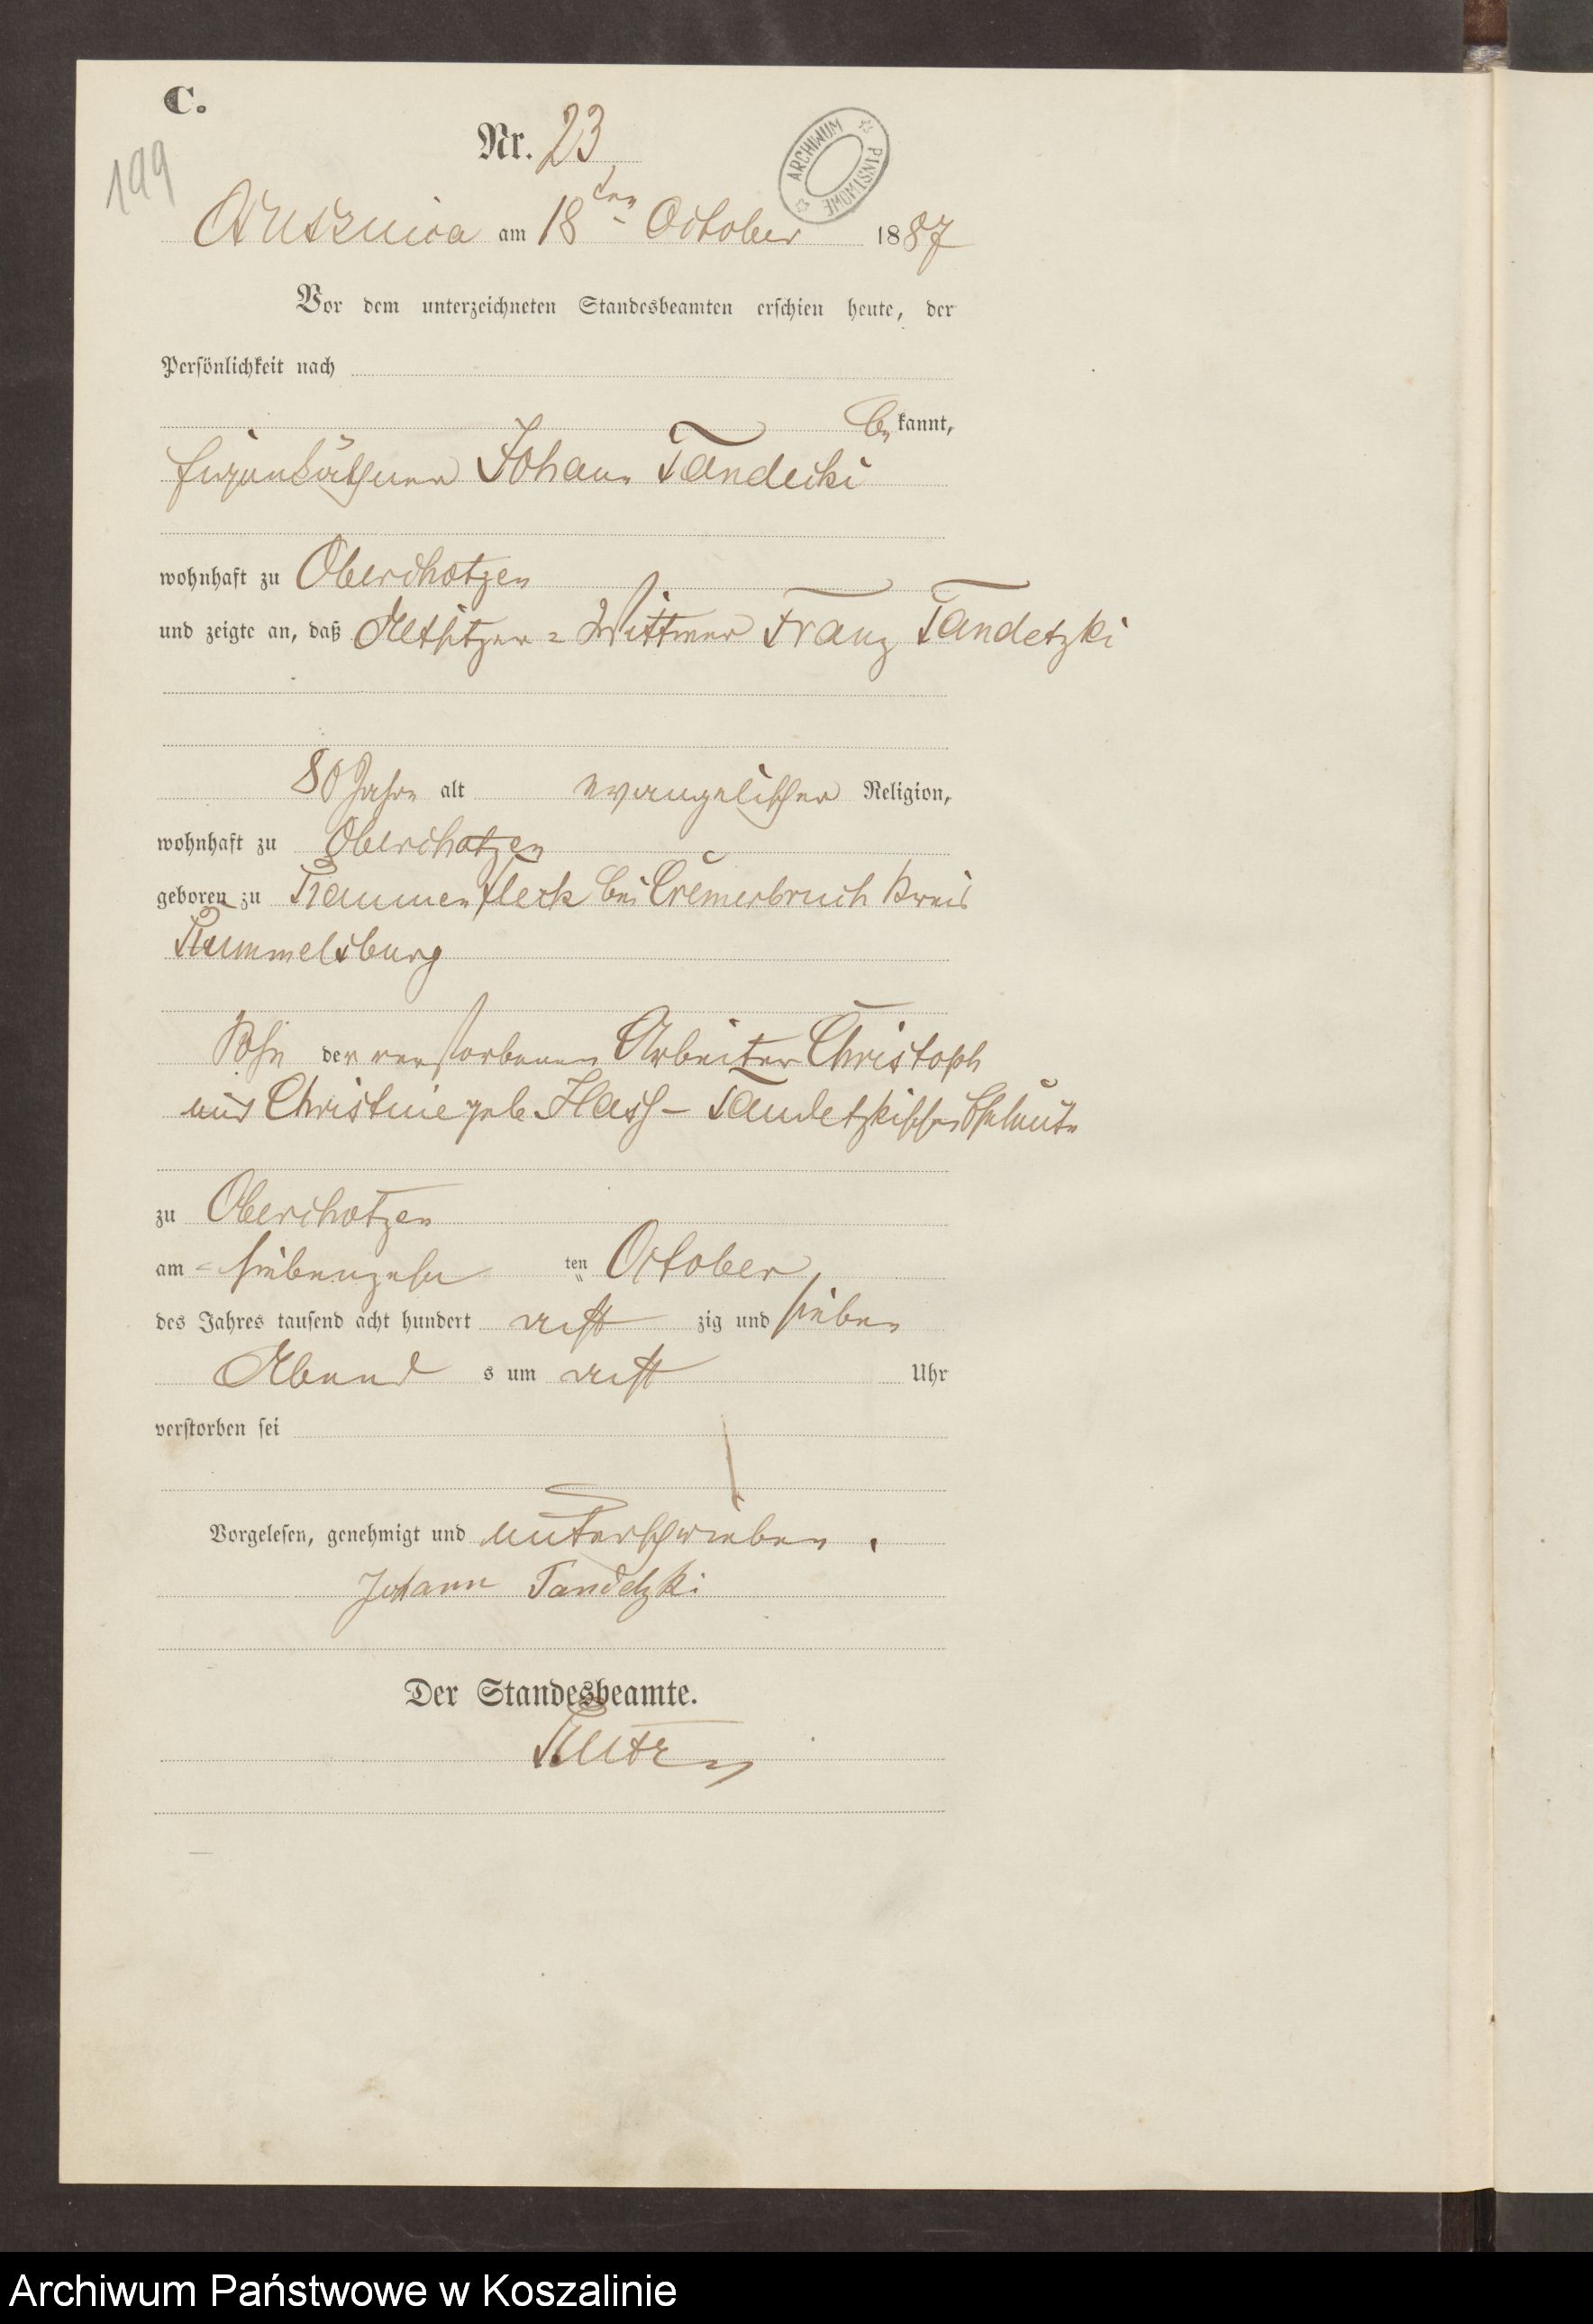 C.
Nr. 23
199
ARCHIWUM PAŃSTWOWE
am 18ten October 1887
Vor dem unterzeichneten Standesbeamten erschien heute, der
Persönlichkeit nach
bekannt,
Eigenkäthner Johann Tandecki
wohnhaft zu Oberchotzen
und zeigte an, daß Altsitzer = Wittwer Franz Tandetzki
80 Jahre alt evangelischer Religion,
wohnhaft zu Oberchotzen
geboren zu bei Cremerbruch Kreis
Rummelsburg
Sohn der verstorbenen Arbeiter Christoph
und Christine geb. Hass - Tandetzkischen Eheleute
zu Oberchotzen
am siebenzehn ten October
des Jahres tausend acht hundert acht zig und sieben
Abend s um acht Uhr
verstorben sei
Vorgelesen, genehmigt und unterschrieben.
Johann Tandetzki
Der Standesbeamte.
Archiwum Państwowe w Koszalinie